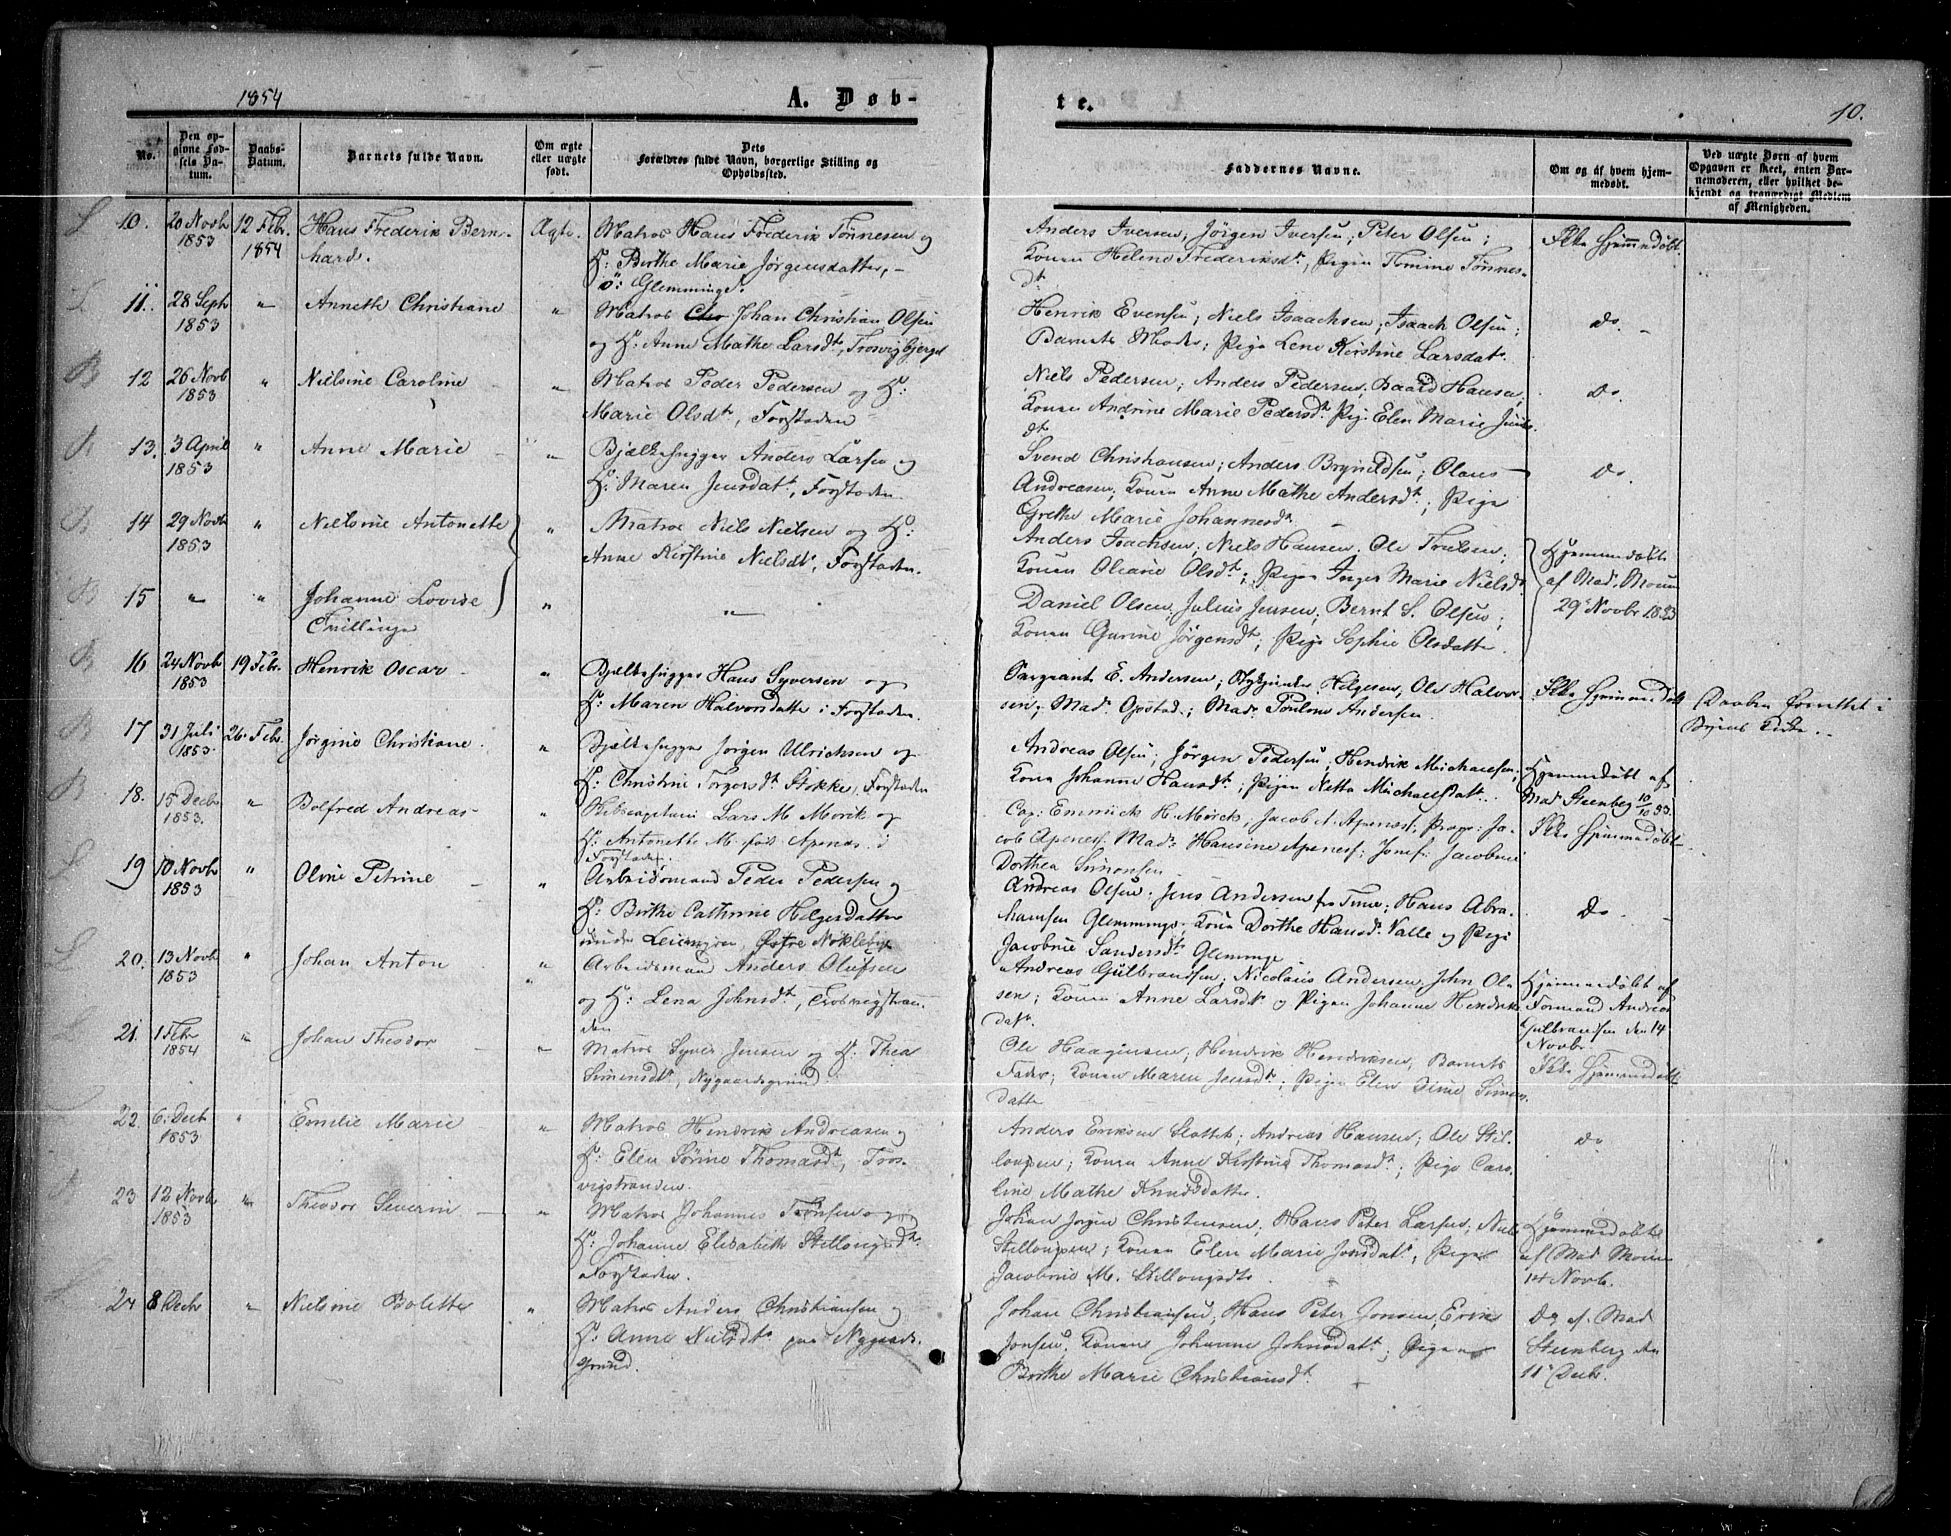 1854
A. Døb-
te.
10.
No.
Den op-
givne Fød-
sels Da-
tum.
Daabs-
Datum.
Barnets fulde Navn.
Om ægte
eller uægte
født.
Dets
Forældres fulde Navn, borgerlige Stilling og
Opholdssted.
Faddernes Navne.
Om og af hvem hjem-
medøbt.
Ved uægte Børn af hvem
Opgaven er skeet, enten Bar-
nemoderen, eller hvilket be-
kjendt og troværdigt Medlem
af Menigheden.
10. 20 Novb 1853 12 Febr. 1854 Hans Frederik Bern-
hard. Ægte.
Matros Hans Frederik Tønnesen og
H: Birthe Marie Jørgensdatter,
ö: Glemminge.
Anders Iversen; Jørgen Iversen; Peter Olsen;
Konen Helene Frederiksdt, Pigen Tomine Tønnes-
dt
Ikke Hjemmedøbt.
11. 28 Septb 1853 " Annette Christiane "
Matros Johan Christian Olsen
og H: Anne Mathe Larsdt, Trosvigbjerget
Henrik Evensen; Niels Isaachsen; Isaach Olsen;
Barnets Moder; Pige Lene Kirstine Larsdatr.
do.
12 26 Novb 1853 " Nielsine Caroline "
Matros Peder Pedersen og H:
Marie Olsdt, Forstaden
Niels Pedersen; Anders Pedersen, Baard Hansen,
Konen Andrine Marie Pedersdt. Pig: Elen Marie Jens-
dt
do.
13. 3 April 1853 " Anne Marie "
Bjælkehugger Anders Larsen og
H: Maren Jensdatt, Forstaden
Svend Christiansen; Anders Brynildsen; Olaus
Andreasen; Konen Anne Mathe Andersdt; Pige
Grethe Marie Johannesdt
do
14 29 Novb 1853 " Nielsine Antonette "
Matros Niels Nielsen og H:
Anne Kirstine Nielsdt, Forstaden.
Anders Isachsen; Niels Hansen. Ole Truelsen;
Konen Oleane Olsdt; Pigen Inger Marie Nielsdt
Hjemmedøbt
af Mad. Moum
29 Novbr 1853
15 " " Johanne Lovise
Tvillinge " "
Daniel Olsen, Julius Jensen; Bernt S. Olsen;
Konen Gurine Jørgensdt; Pige Sophie Olsdatte.
16 24 Novb 1853 19 Febr. Henrik Oscar "
Bjælkehugger Hans Syversen og
H: Maren Halvorsdatte i Forstaden.
Sargeant E. Andersen; Helgesen, Ole Halvor-
sen; Mad. Opstad; Mad. Pouline Andersen.
Ikke Hjemmedøbt
Daaben forrettet i
Byens Kirke.
17 31 Juli 1853. 26. Febr. Jørgine Christiane. "
Bjælkehugger Jørgen Ulrichsen og
H: Christine Torgersdt Stokke, Forstaden
Andreas Olsen; Jørgen Pedersen; Hendrik Michaelsen;
Kone Johanne Hansdt; Pigen Netta Michaelsdatt.
Hjemmedøbt af
Mad. Steenberg 10/10 53.
18. 15 Decbr 1853. " Bolfred Andreas "
Skibscapitain Lars M. Mørik og
H: Antonette M. født Apenæs i
Forstaden.
Cap: Emmick H. Mørck, Jacob A. Apenæs; Propr: Ja-
cob Apenæs. Mad: Hansine Apenæs; Jomf: Jacobine
Dorthea Simonsen
Ikke Hjemmedøbt
19 10 Novb 1853 " Oline Petrine "
Arbeidsmand Peder Pedersen og
H: Birthe Cathrine Helgesdatter
under Leiemyren, Østre Nøkleby
Andreas Olsen. Jens Andersen fra Tune; Hans Abra-
hamsen Glemminge; Kone Dorthe Hansdt. Valle og Pige
Jacobine Sandersdt Glemminge
Do
20. 13 Novb 1853 " Johan Anton "
Arbeidsmand Anders Olufsen
og H: Lena Johnsdt, Trosvigstran-
den
Andreas Gulbrandsen, Nicolaus Andersen, John Ol-
sen; Konen Anne Larsdt. og Pigen Johanne Hendriks-
datt.
Hjemmedøbt af
Formand Andreas
Gulbrandsen den 14
Novbr.
21. 1 Febr 1854 " Johan Theodor "
Matros Syver Jensen og H. Thea
Simensdt, Nygaardsgrund
Ole Haagensen, Hendrik Hendriksen, Barnets
Fader; Konen Maren Jensdt; Pigen Elen Sine Simens-
datte
Ikke Hjemmedøbt
22. 6. Decb 1853 " Emilie Marie "
Matros Hendrik Andreasen og
H: Elen Sørine Thomasdt, Tros-
vigstranden.
Anders Eriksen Slottet; Andreas Hansen; Ole Stil-
lougsen; Konen Anne Kirstine Thomasdt; Pige Caro-
line Mathe Knudsdatter
do
23 12 Novb 1853 " Theodor Severin "
Matros Johannes Tronsen og
H: Johanne Elisabeth Stillougsdt.
Forstaden.
Johan Jørgen Christensen, Hans Peter Larsen, Niels
Stillougsen; Konen Elen Marie Jonsdatr, Pige
Jacobine M. Stillougsdtr
Hjemmedøbt
af Mad Moum
14 Novb.
24 8 Decbr " Nielsine Bolette "
Matros Anders Christiansen og
H: Anne Nielsdt. paa Nygaards-
grund.
Johan Christiansen, Hans Peter Jonsen, Erik
Jonsen. Konen Johanne Johnsdatt; Pigen
Birthe Marie Christiansdt.
Do af Mad
Steenberg den
11 Decbr.